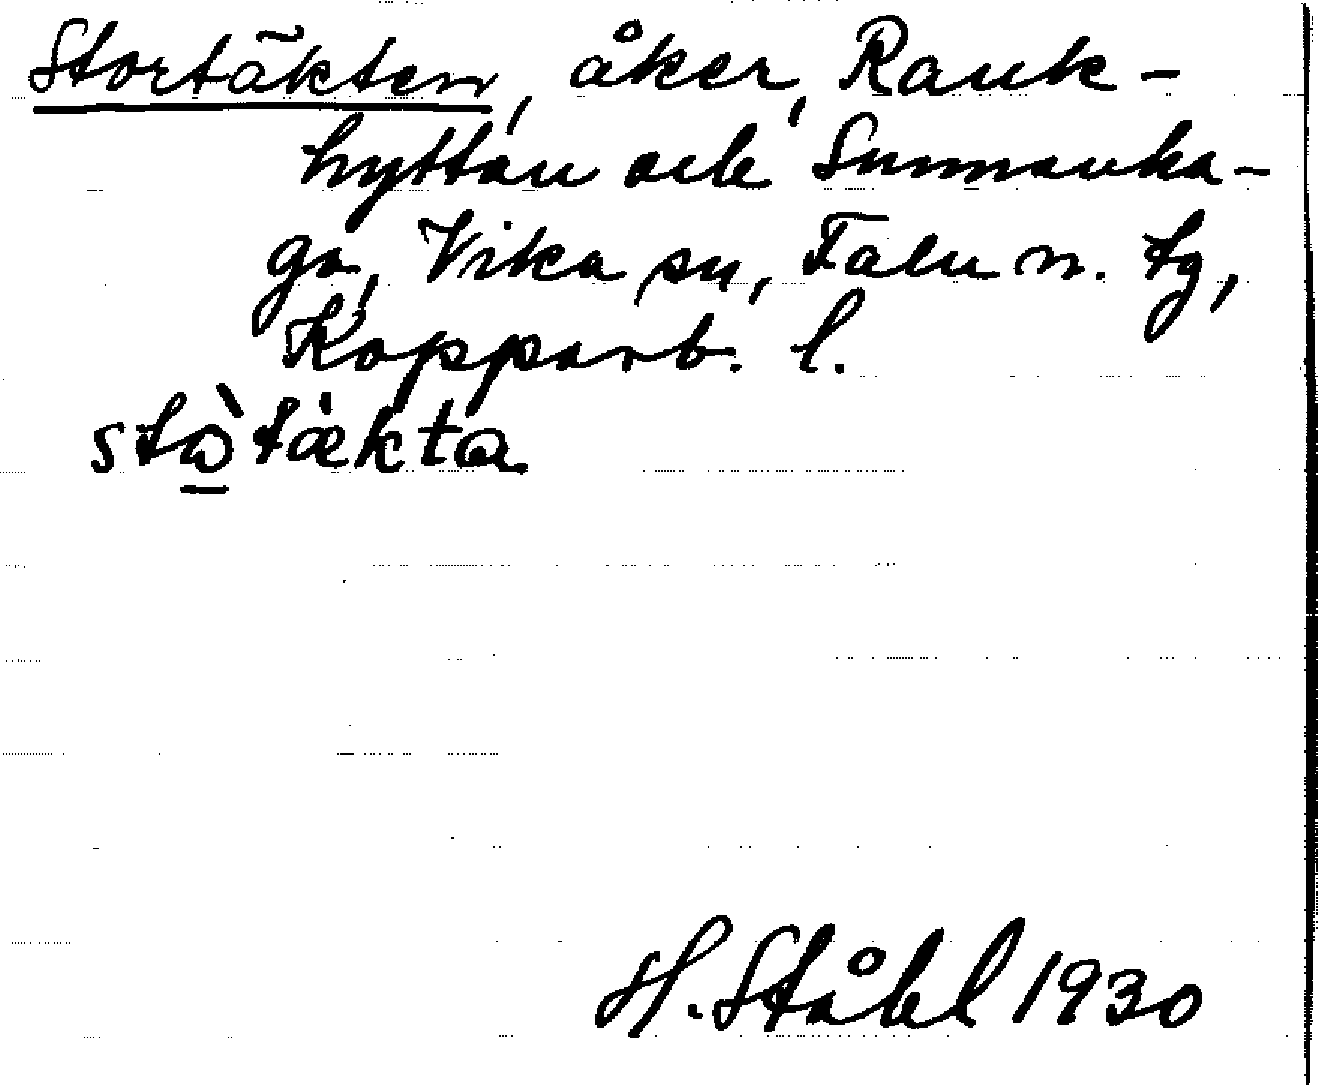 Stortäkten, åker, Rank-
hyttan och Sunnanha-
ga, Vika sn, Falu n. tg,
Kopparb. l.
stò̱tækta
H. Ståhl 1930